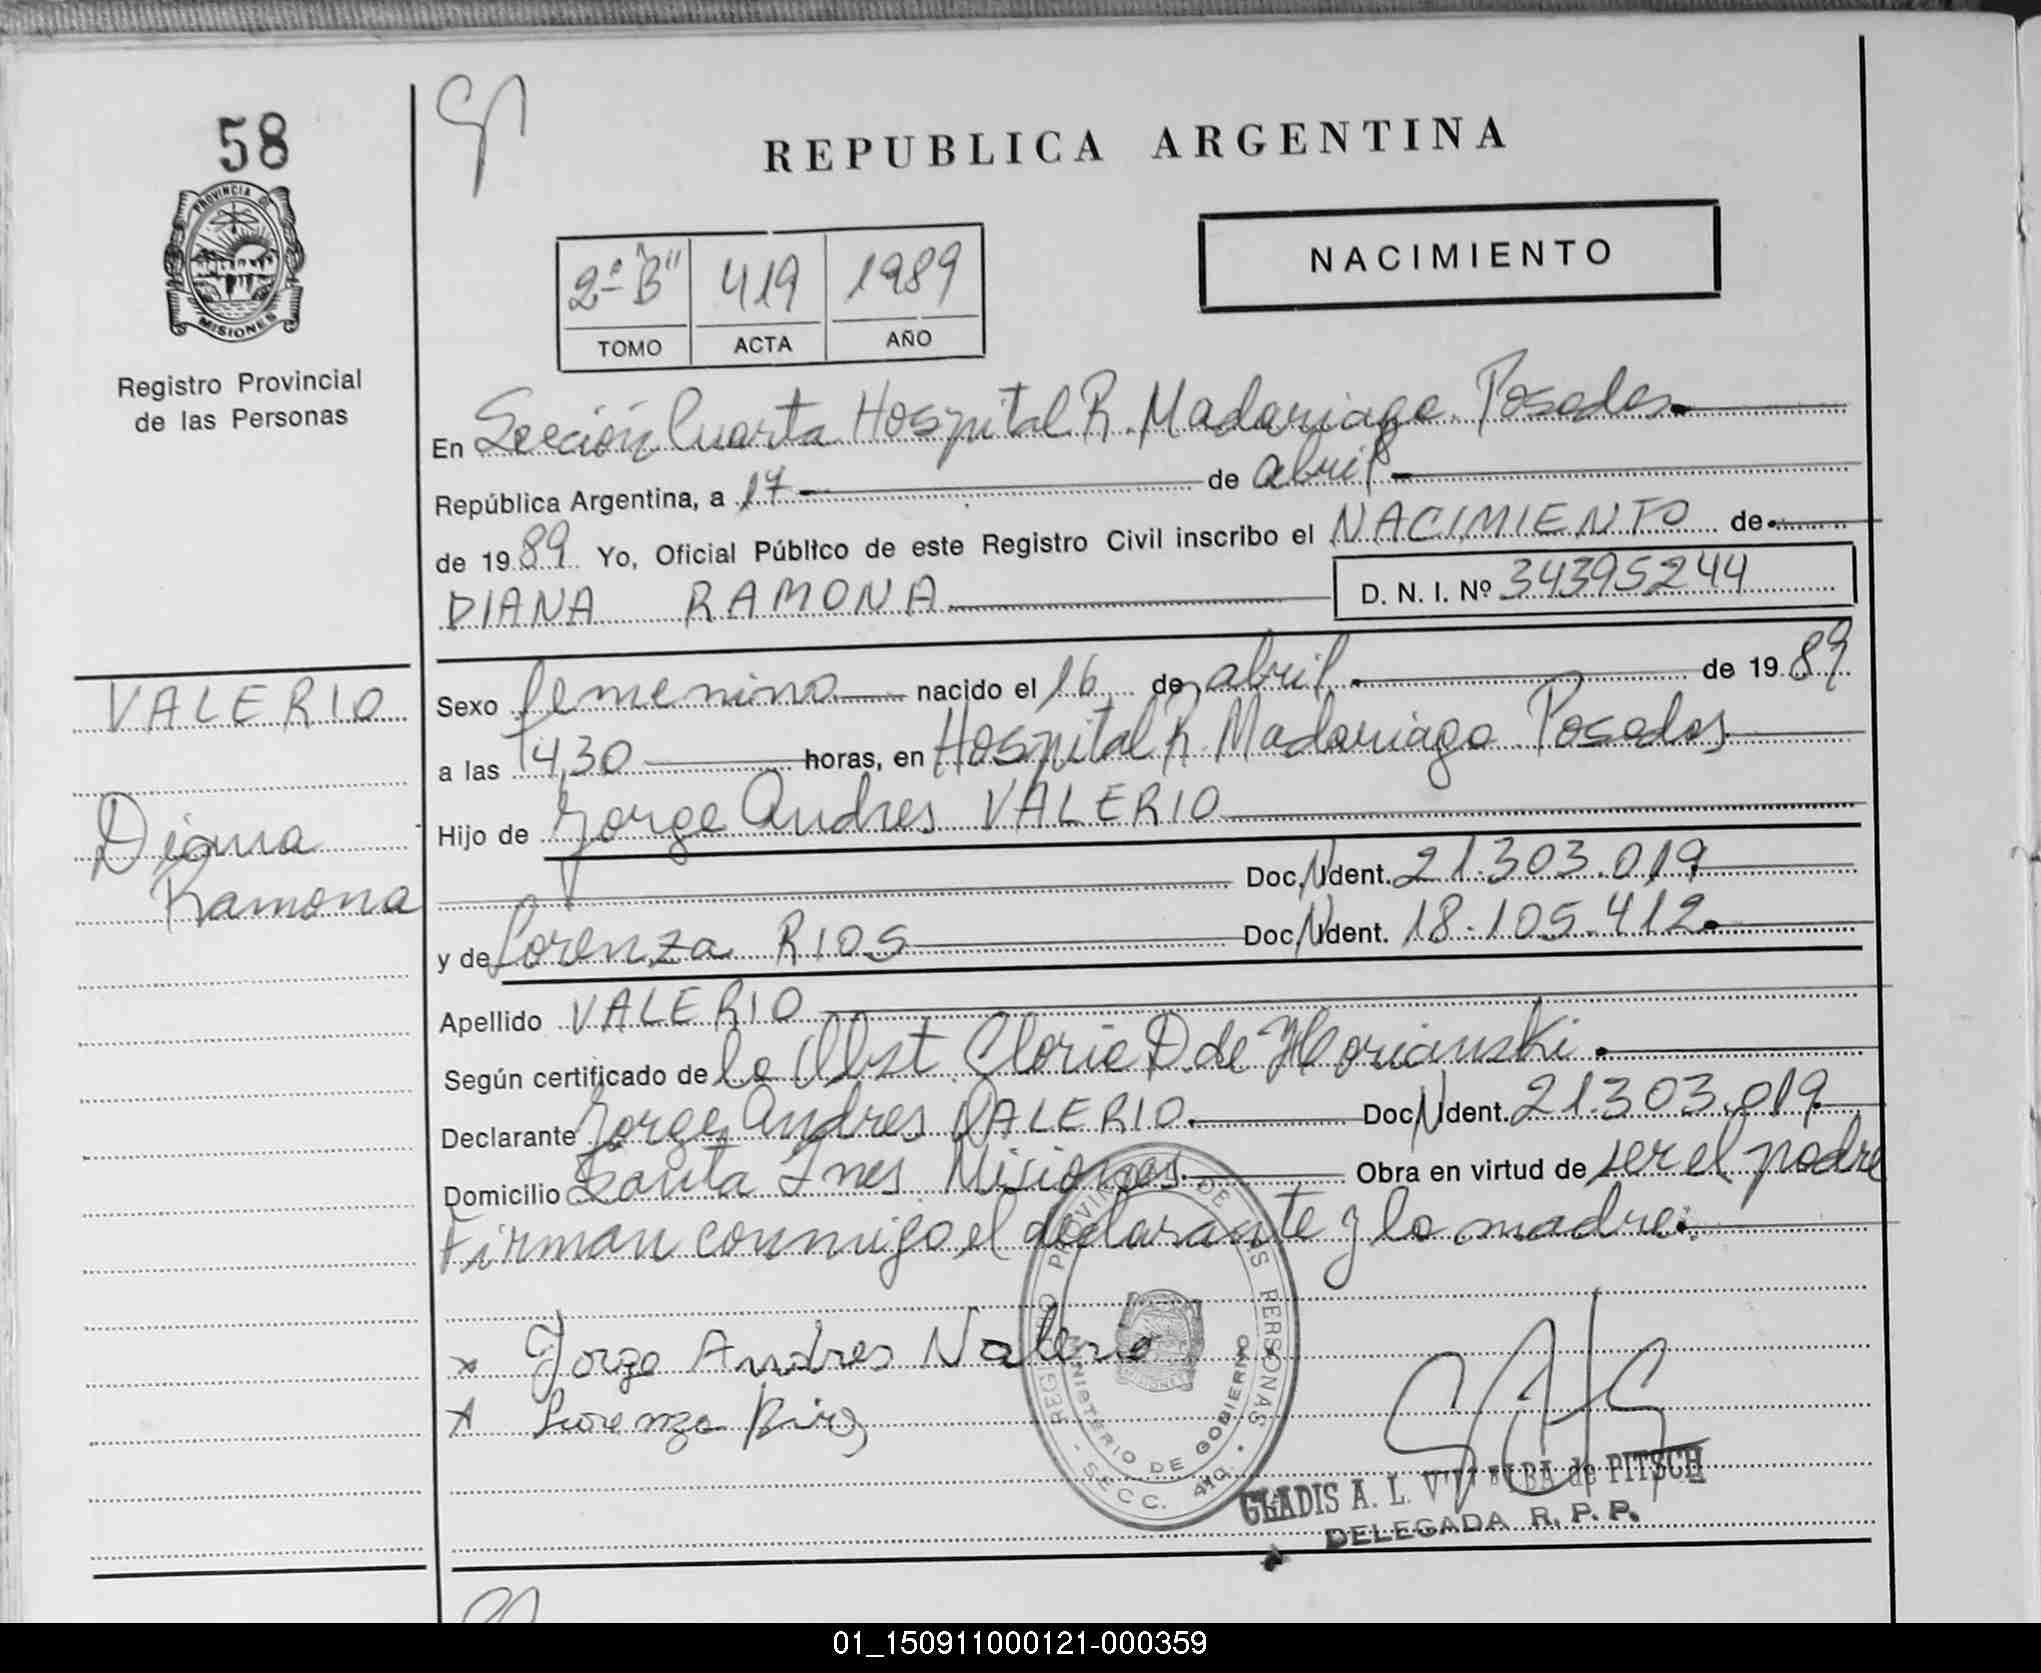 58
PROVINCIA
MISIONES
Registro Provincial
de las Personas
REPUBLICA ARGENTINA
NACIMIENTO
2º "B" 419 1989
TOMO ACTA AÑO
En Sección Cuarta Hospital R. Madariaga Posadas
República Argentina, a 17 de abril
de 1989 Yo, Oficial Público de este Registro Civil inscribo el NACIMIENTO de
DIANA RAMONA D. N. I. Nº 34395244
VALERIO
Diana
Ramona
Sexo femenino nacido el 16 de abril de 1989
a las 14,30 horas, en Hospital R. Madariaga Posadas
Hijo de Jorge Andres VALERIO
Doc. Ident. 21.303.019
y de Lorenza RIOS Doc. Ident. 18.105.412
Apellido VALERIO
Según certificado de la Obst. Gloria D. de
Declarante Jorge Andres VALERIO Doc. Ident. 21.303.019
Domicilio Santa Ines Misiones Obra en virtud de ser el padre
Firman conmigo el declarante y la madre
x Jorge Andres Valerio
x Lorenza Rios
REGISTRO PROVINCIAL DE LAS PERSONAS
MINISTERIO DE GOBIERNO
SECC. 4ta.
GLADIS A. L. VILLALBA de PITSCH
DELEGADA R. P. P.
01_150911000121-000359